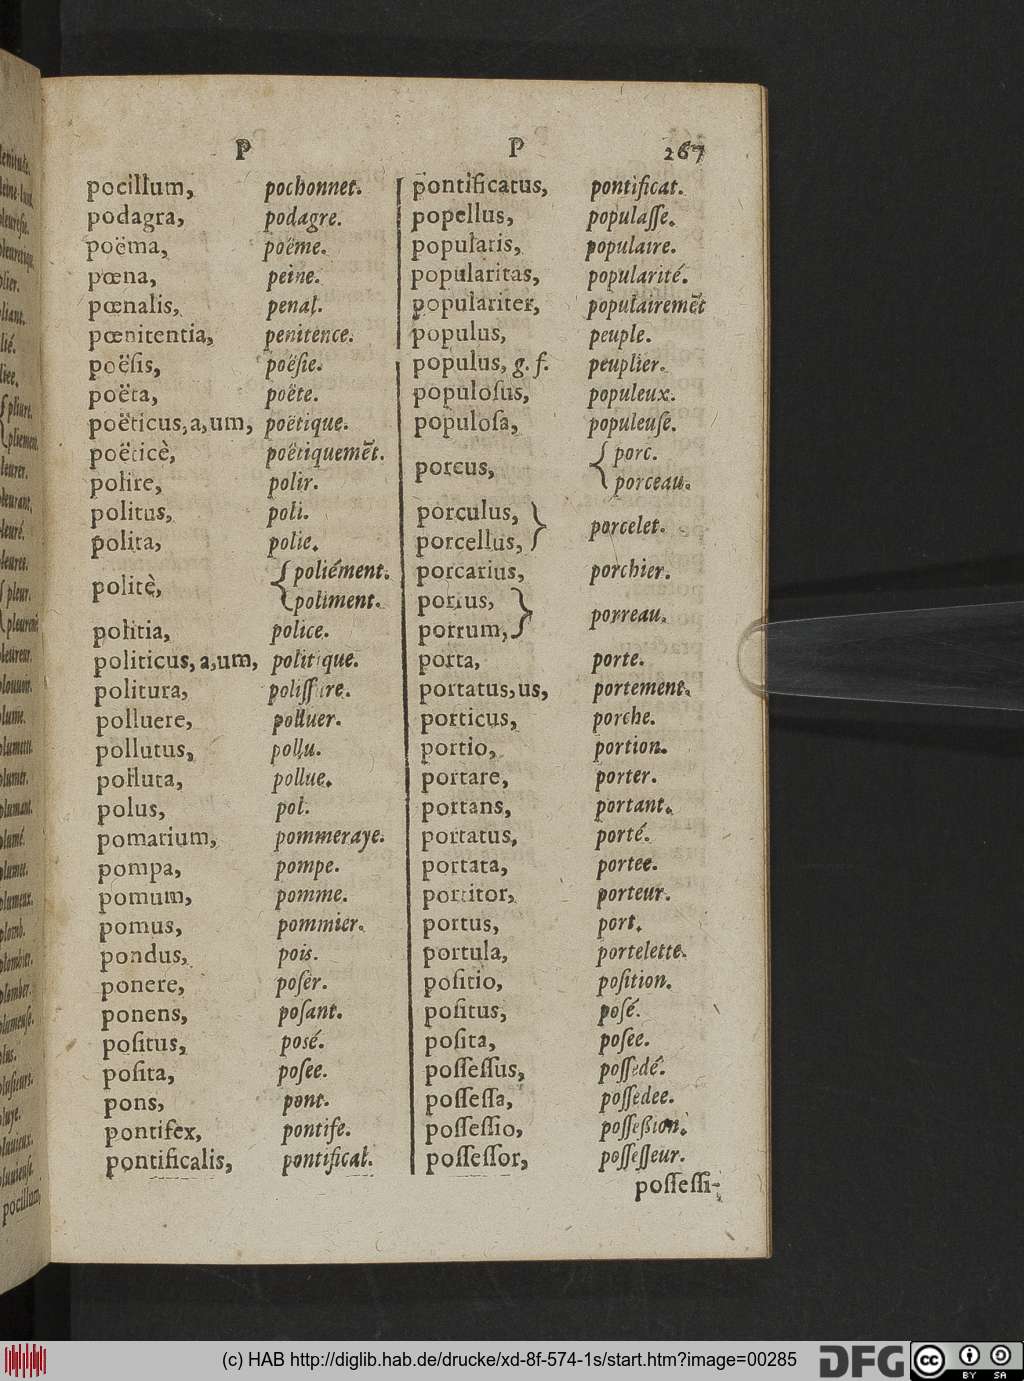 P P 267
pocillum, pochonnet.
podagra, podagre.
poëma, poëme.
pœna, peine.
pœnalis, penal.
pœnitentia, penitence.
poësis, poësie.
poëta, poëte.
poëticus, a, um, poëtique.
poëticè, poëtiquemẽt.
polire, polir.
politus, poli.
polita, polie.
politè, { poliément.
poliment.
politia, police.
politicus, a, um, politique.
politura, polissure.
polluere, polluer.
pollutus, pollu.
polluta, pollue.
polus, pol.
pomarium, pommeraye.
pompa, pompe.
pomum, pomme.
pomus, pommier.
pondus, pois.
ponere, poser.
ponens, posant.
positus, posé.
posita, posee.
pons, pont.
pontifex, pontife.
pontificalis, pontifical.
pontificatus, pontificat.
popellus, populasse.
popularis, populaire.
popularitas, popularité.
populariter, populairemẽt
populus, peuple.
populus, g. f. peuplier.
populosus, populeux.
populosa, populeuse.
porcus, { porc.
porceau.
porculus, }
porcellus, } porcelet.
porcarius, porchier.
porrus, }
porrum, } porreau.
porta, porte.
portatus, us, portement.
porticus, porche.
portio, portion.
portare, porter.
portans, portant.
portatus, porté.
portata, portee.
portitor, porteur.
portus, port.
portula, portelette.
positio, position.
positus, posé.
posita, posee.
possessus, possedé.
possessa, possedee.
possessio, posseßion.
possessor, possesseur.
possessi-
pocillum,
(c) HAB http://diglib.hab.de/drucke/xd-8f-574-1s/start.htm?image=00285
DFG
cc BY SA